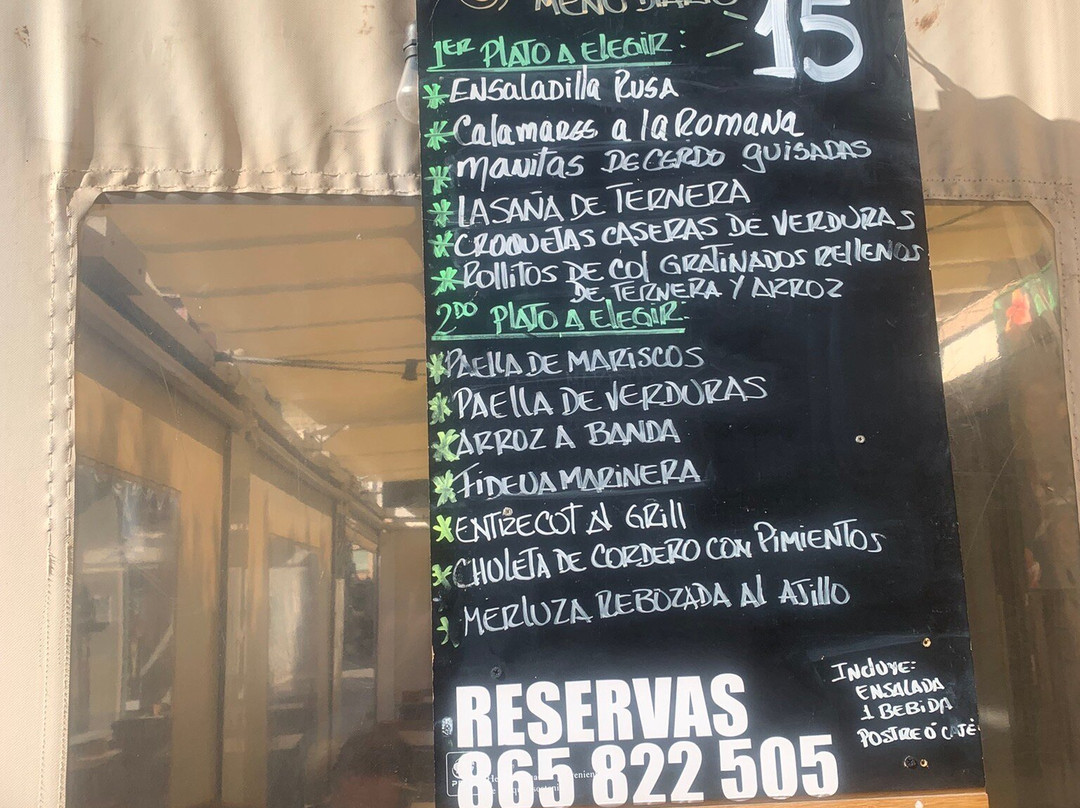 MENÚ DIARIO
15
1ER PLATO A ELEGIR:
* ENSALADILLA RUSA
* CALAMARES A LA ROMANA
* MANITAS DE CERDO GUISADAS
* LASAÑA DE TERNERA
* CROQUETAS CASERAS DE VERDURAS
* ROLLITOS DE COL GRATINADOS RELLENOS
DE TERNERA Y ARROZ
2DO PLATO A ELEGIR:
* PAELLA DE MARISCOS
* PAELLA DE VERDURAS
* ARROZ A BANDA
* FIDEUA MARINERA
* ENTRECOT AL GRILL
* CHULETA DE CORDERO CON PIMIENTOS
* MERLUZA REBOZADA AL AJILLO
INCLUYE:
ENSALADA
1 BEBIDA
POSTRE O CAFÉ
RESERVAS
865 822 505